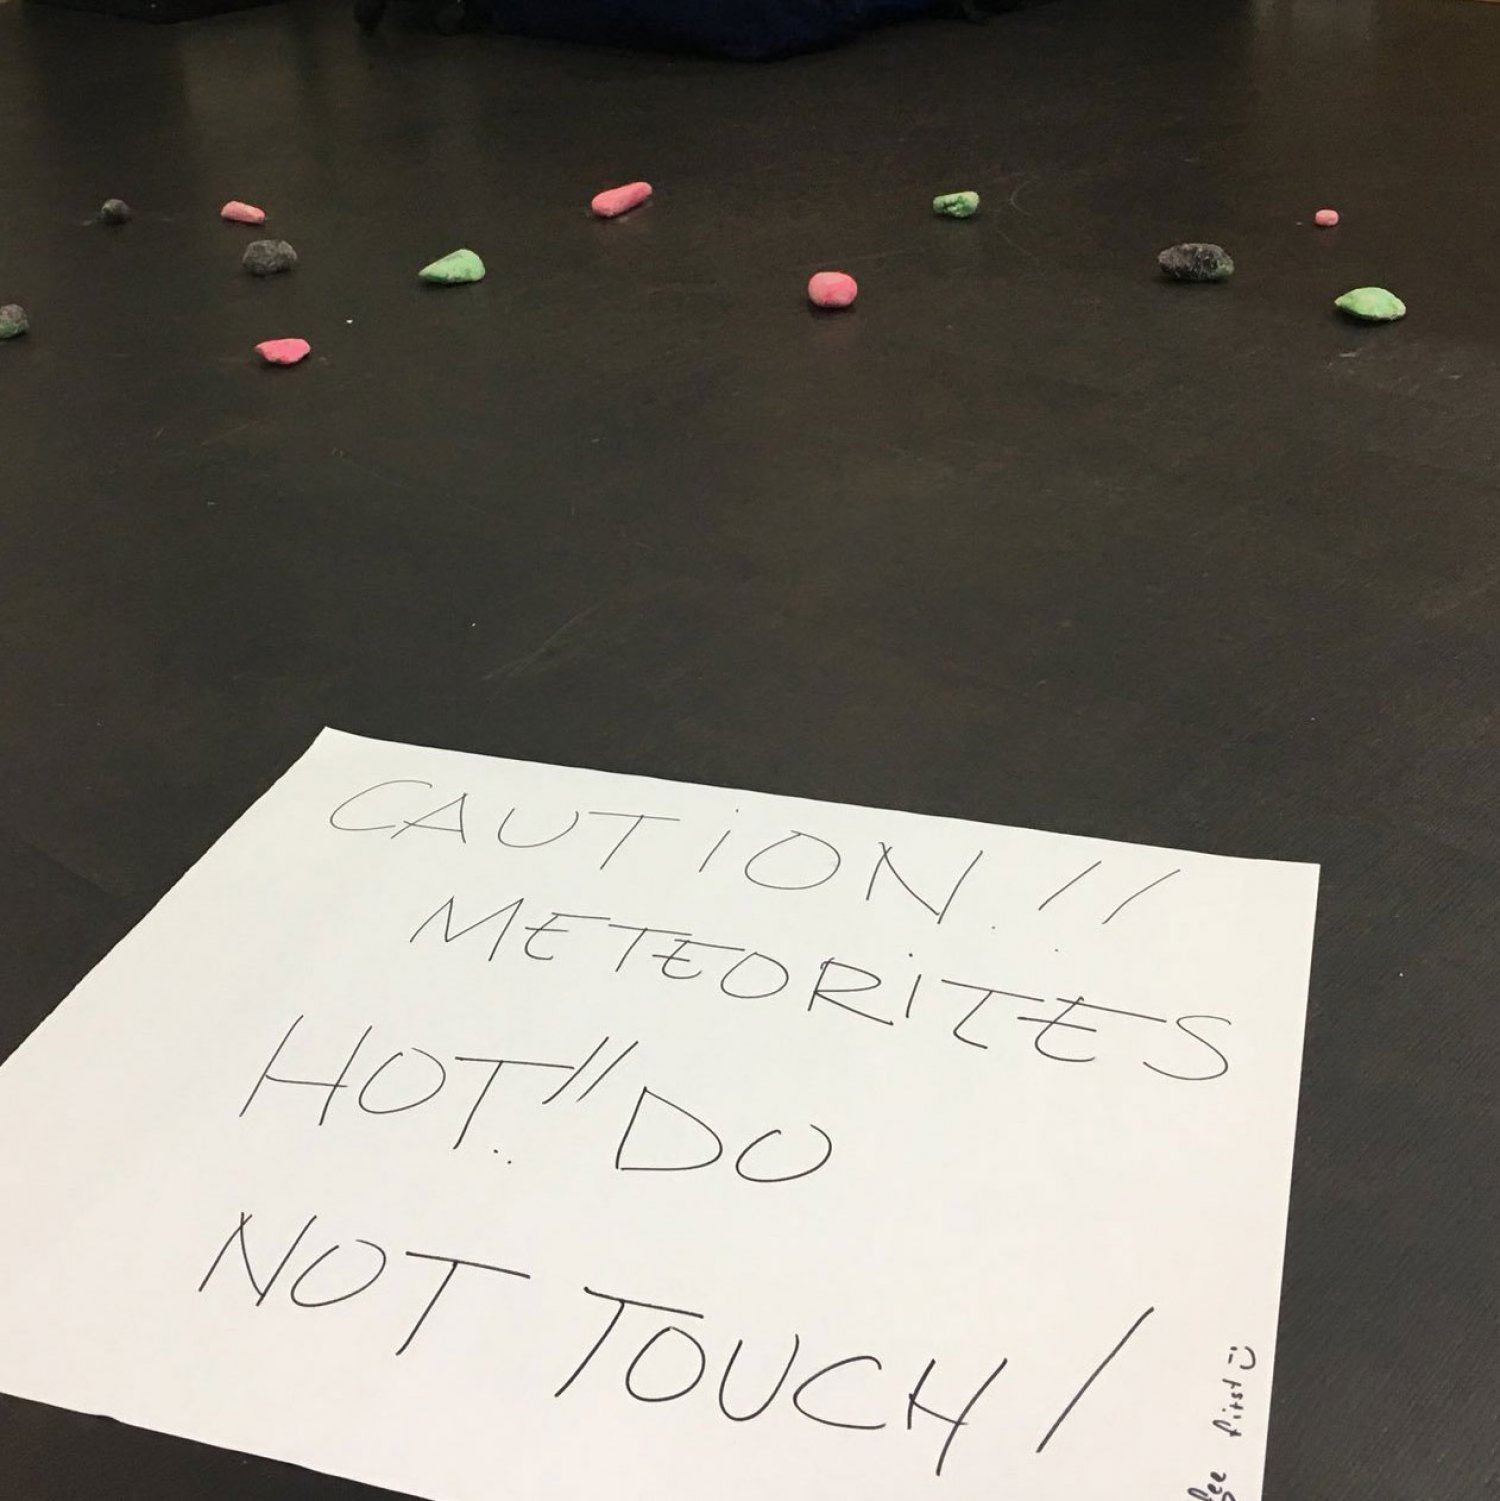 CAUTiON!!!
METEORiTES
HOT!! DO
NOT TOUCH!
first :)